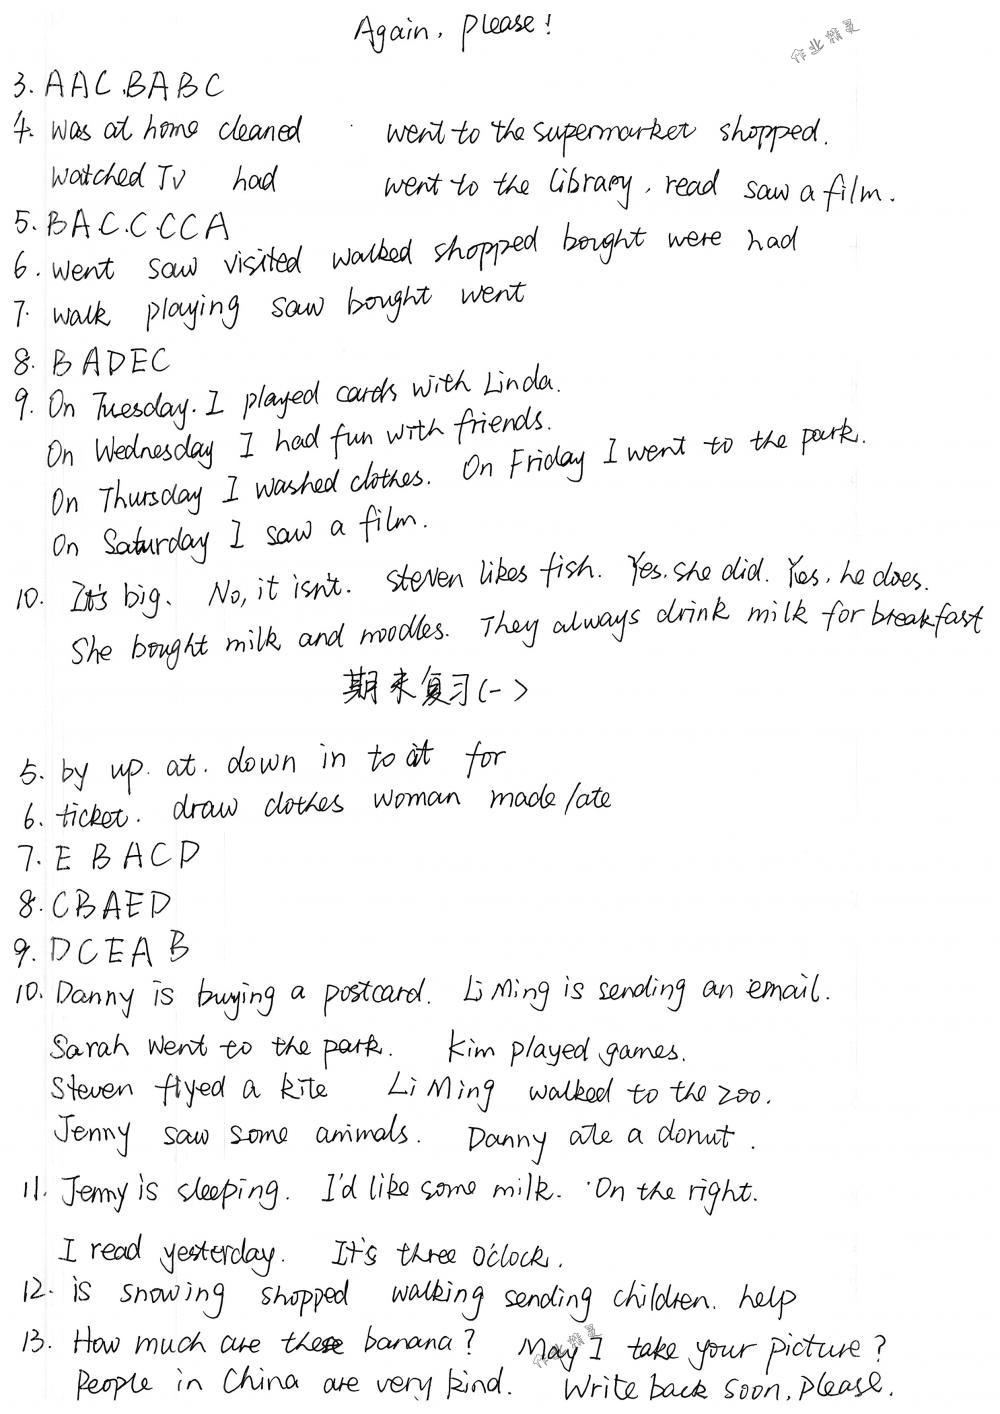 Again, please!
作业精灵
3. A A C . B A B C
4. was at home cleaned went to the supermarket shopped.
watched TV had went to the library, read saw a film.
5. B A C. C. C C A
6. went saw visited walked shopped bought were had
7. walk playing saw bought went
8. B A D E C
9. On Tuesday. I played cards with Linda.
On Wednesday I had fun with friends.
On Thursday I washed clothes. On Friday I went to the park.
On Saturday I saw a film.
10. It's big. No, it isn't. Steven likes fish. Yes, she did. Yes, he does.
She bought milk and noodles. They always drink milk for breakfast
期末复习(一)
5. by up. at. down in to at for
6. ticket. draw clothes woman made/ate
7. E B A C D
8. C B A E D
9. D C E A B
10. Danny is buying a postcard. Li Ming is sending an email.
Sarah went to the park. Kim played games.
Steven flyed a kite Li Ming walked to the zoo.
Jenny saw some animals. Danny ate a donut.
11. Jenny is sleeping. I'd like some milk. On the right.
I read yesterday. It's three o'clock.
12. is snowing shopped walking sending children. help
13. How much are these banana? May I take your picture?
作业精灵
People in China are very kind. Write back soon, please.